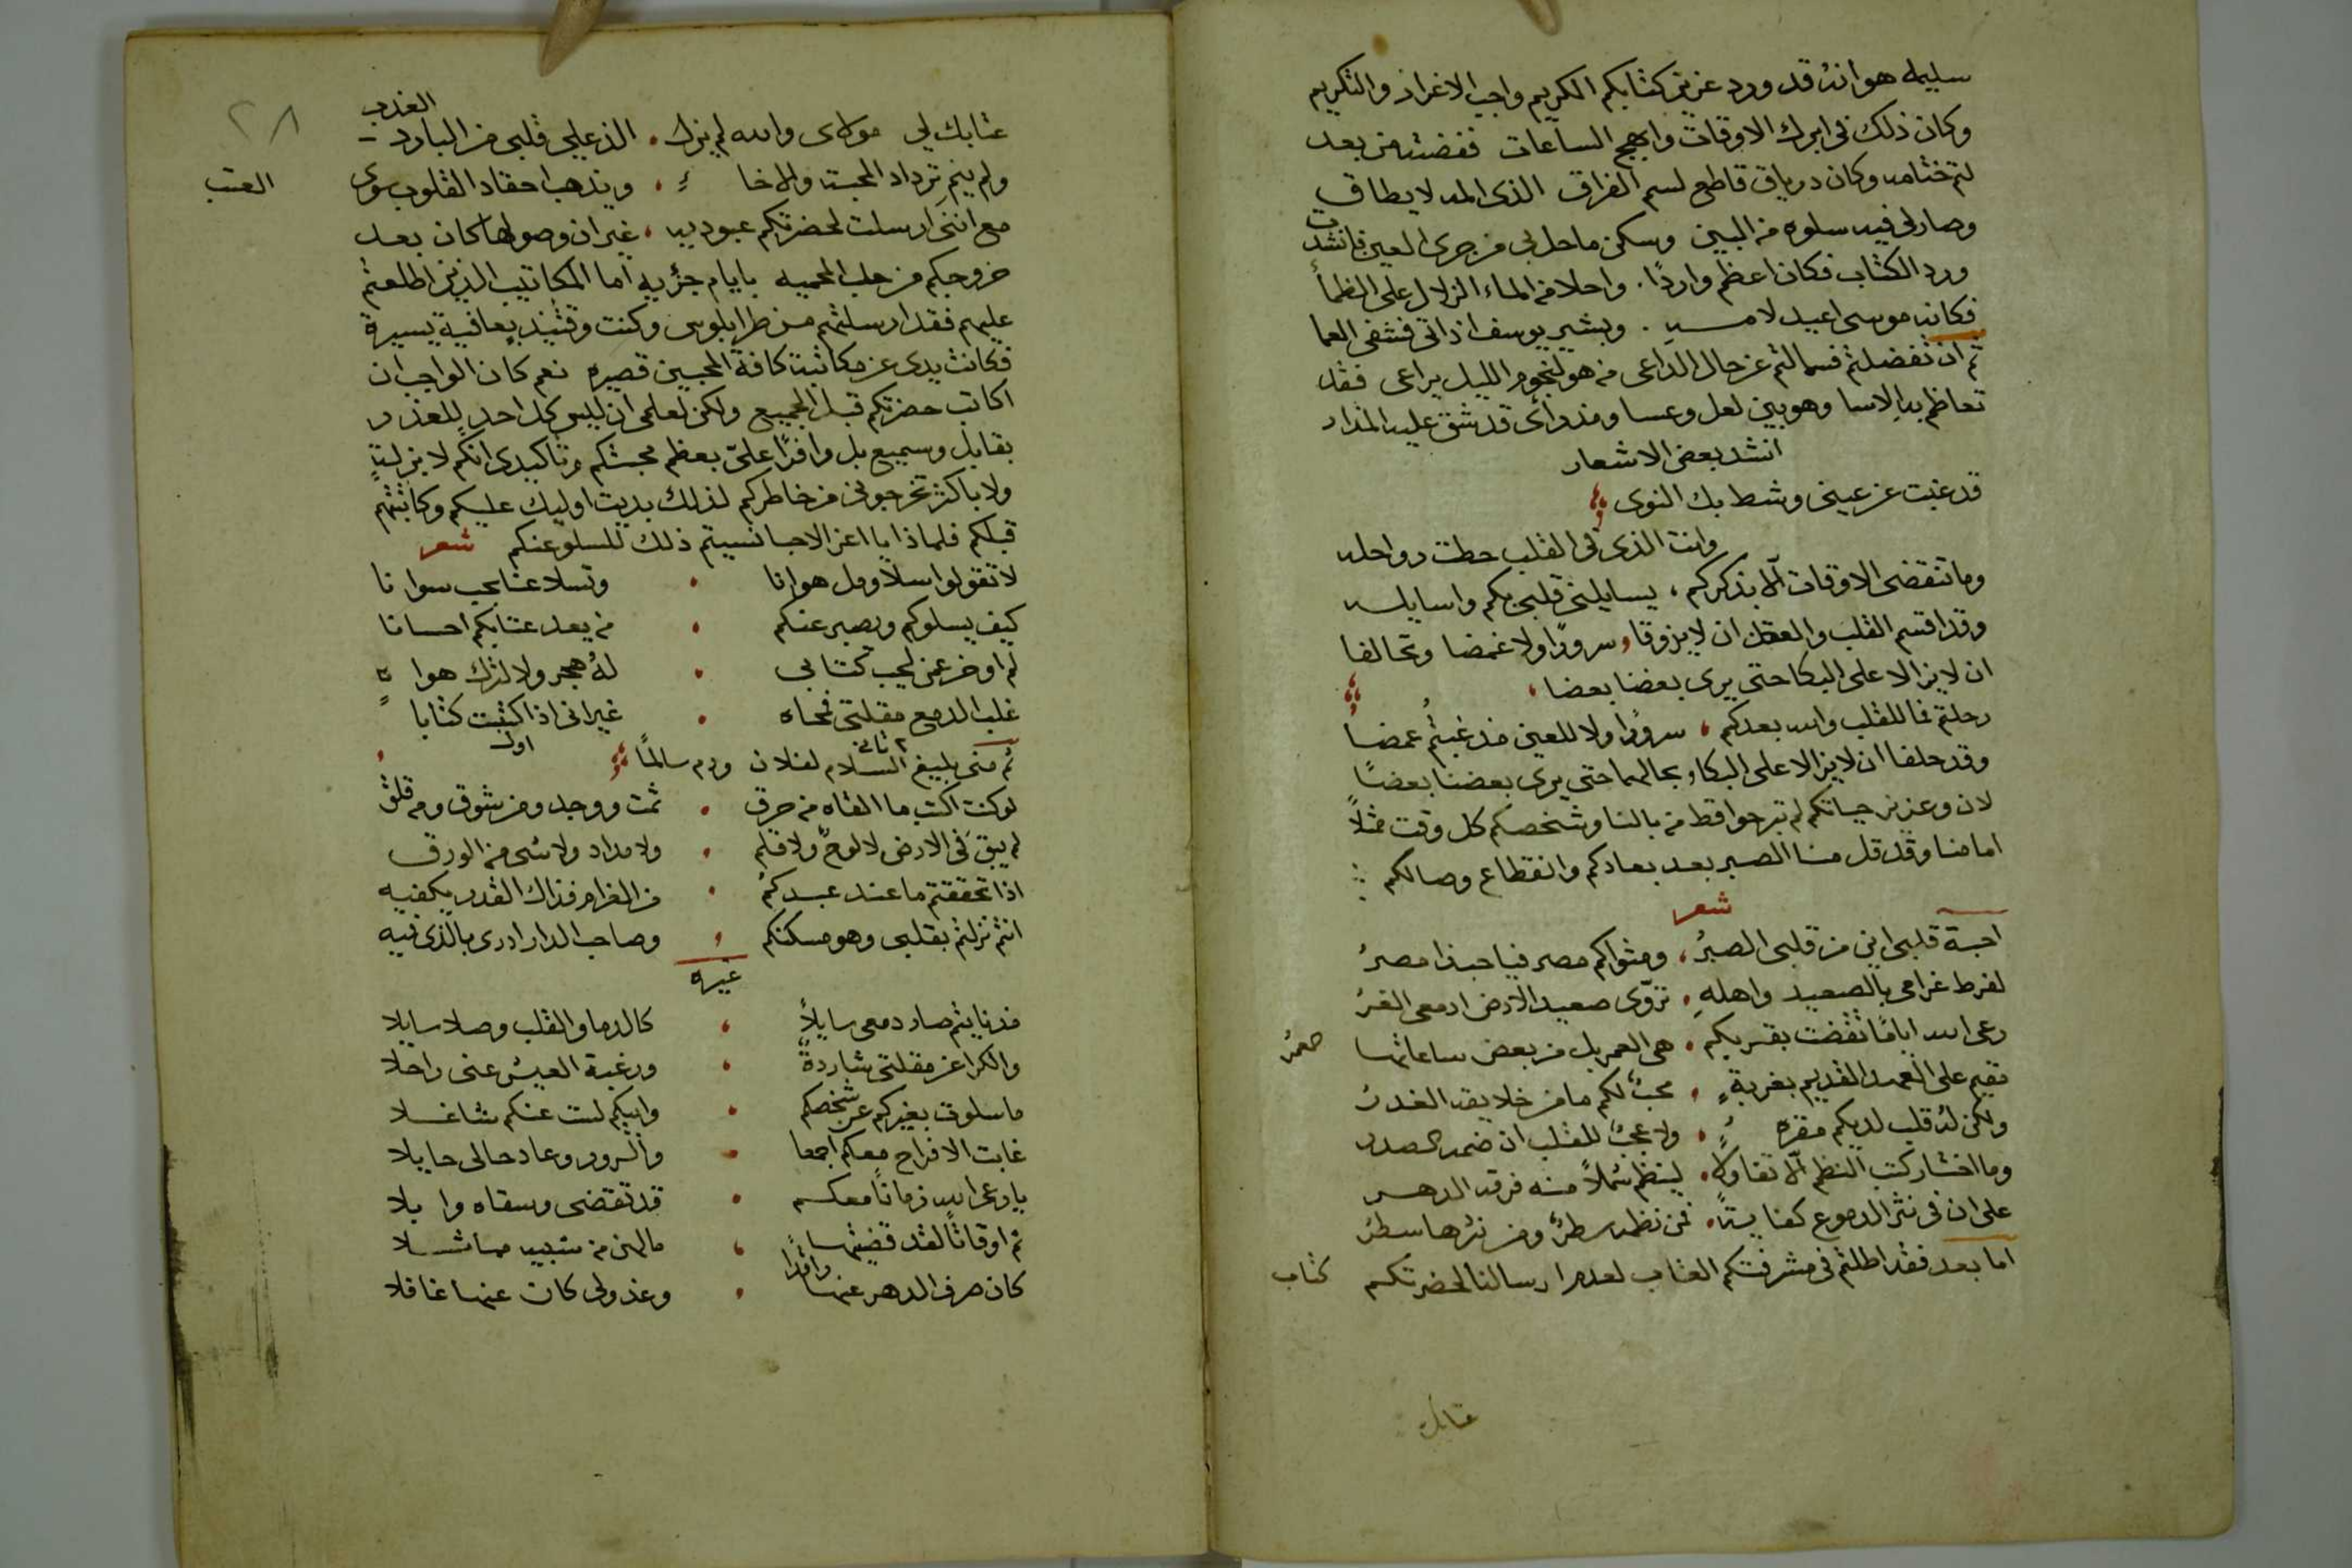 سليمه هو انه قد ورد عزيز كتابكم الكريم واجب الاعزاز والتكريم
وكان ذلك فى ابرك الاوقات وابهج الساعات ففضيته من بعد
لثم ختامه وكان درياق قاطع لسم الفراق الذى المه لا يطاق
وصار لى فيه سلوه من البين وسكن ما حل بى من جرى العين فانشدت
ورد الكتاب فكان اعظم واردًا . واحلا من الماء الزلال على الظمأ
فكانه موسى اعيد لامه . وبشير يوسف اذ اتى فشفى العما
ثم ان تفضلتم فسالتم عن حال الداعى من هو لنجوم الليل يراعى فقد
تعاظم به الاسا وهو بين لعل وعسا ومذ وأى قد شق عليه المزار
انشد بعض الاشعار
قد غبت عن عينى وشط بك النوى
وانت الذى فى القلب حطت رواحله
وما تنقضى الاوقات الا بذكركم ، يسايلنى قلبى بكم واسايله
وقد اقسم القلب والمعقل ان لا يزوقا سرورًا ولا غمضا وتحالفا
ان لا يزالا على البكا حتى يرى بعضنا بعضا ،
رحلتم فما للقلب والله بعدكم ، سرورًا ولا للعين مذ غبتم غمضا
وقد حلفا ان لا يزالا على البكا وبحالهما حتى يرى بعضنا بعضًا
لان وعزيز حياتكم لم تبرحوا قط من بالنا وشخصكم كل وقت مثلاً
امامنا وقد قل منا الصبر بعد بعادكم وانقطاع وصالكم
شعر
احبة قلبى اين من قلبى الصبرُ ، ومثواكم مصر فيا حبذا مصرُ
لفرط غرامى بالصعيد واهلهِ . تروّى صعيد الارض ادمعى الغزرُ
رعى الله ايامًا تقضت بقربكم . هى العمر بل من بعض ساعاتها عمرُ
نقيم على العهد القديم بغربةٍ . محبٌ لكم ما من خلايقه الغدرُ
ولكن له قلب لديكم مقره . ولا عجبٌ للقلب ان ضمه الصدر
وما اخشار كتب النظم الا تفاولا . لينظم شملاً منه فرقه الدهر
على ان فى نثر الدموع كفاية . فمن نظمه سطرٌ ومن نثرها سطرُ
اما بعد فقد اطلتم فى مشرفتكم العتاب لعدم ارسالنا لحضرتكم كتاب
عتابك
٢٨
عتابك لى مولاى والله لم يزل . الذ على قلبى من البارد العذب
ولم ينم ترداد المحبة والاخاء . ويذهب احقاد القلوب سوى العتب
مع اننى ارسلت لحضرتكم عبوديه ، غير ان وصولها كان بعد
خروجكم من حلب المحميه بايام جزيه اما المكاتيب الذين اطلعتم
عليهم فقد ارسلتهم من طرابلوس وكنت وقتيذٍ بعافية يسيرة
فكانت يدى عن مكاتبة كافة المحبين قصيره نعم كان الواجب ان
اكاتب حضرتكم قبل الجميع ولكن لعلمى ان ليس كل احدٍ للعذر
بقابل وسميع بل وافرًا علىّ بعظم محبتكم وتاكيدى انكم لا بزلةٍ
ولا باكثر تخرجونى من خاطركم لذلك بديت اوليك عليكم وكاتبتهم
قبلكم فلماذا يا اعز الاحبا نسبتم ذلك للسلو عنكم شعر
لا تقولوا سلا ومل هوانا . وتسلا عنا بحب سوانا
كيف يسلوكم ويصبر عنكم . من يعد عتابكم احسانا
لم اوخر عمن احب كتابى . لهُ هجر ولا لترك هواه
غلب الدمع مقلتى فمحاه . غير انى اذا كتبت كتابا
ثم منى بليغ السلام لفلان ودم سالمًا
٢ ثانى اول
لو كنت اكتب ما القاه من حرق . ثمت ووجد ومن شوق ومن قلق
لم يبق فى الارض لا لوحٌ ولا قلم . ولا مداد ولا شى من الورق
اذا تحققتم ما عند عبدكمُ . من الغرام فذاك القدر يكفيه
انتم نزلتم بقلبى وهو مسكنكم . وصاحب الدار ادرى بالذى فيه
غيره
مذ نايتم صار دمعى سايلاً ، كالدما والقلب وصلا سايلا
والكرا عن مقلتى شاردةً ، ورغبة العيش عنى راحلا
ما سلوت بغيركم عن شخصكم . وابيكم لست عنكم شاغلا
غابت الافراح معكم اجمعا . والسرور وعاد حالى حايلا
يا رعى الله زمانًا معكم . قد تقضى وسقاه وابلا
ثم اوقاتًا لقد قضيتها ، مالهن من شبيه مماثلا
كان صرف الدهر عنها راقدًا . وعذولى كان عنها غافلا